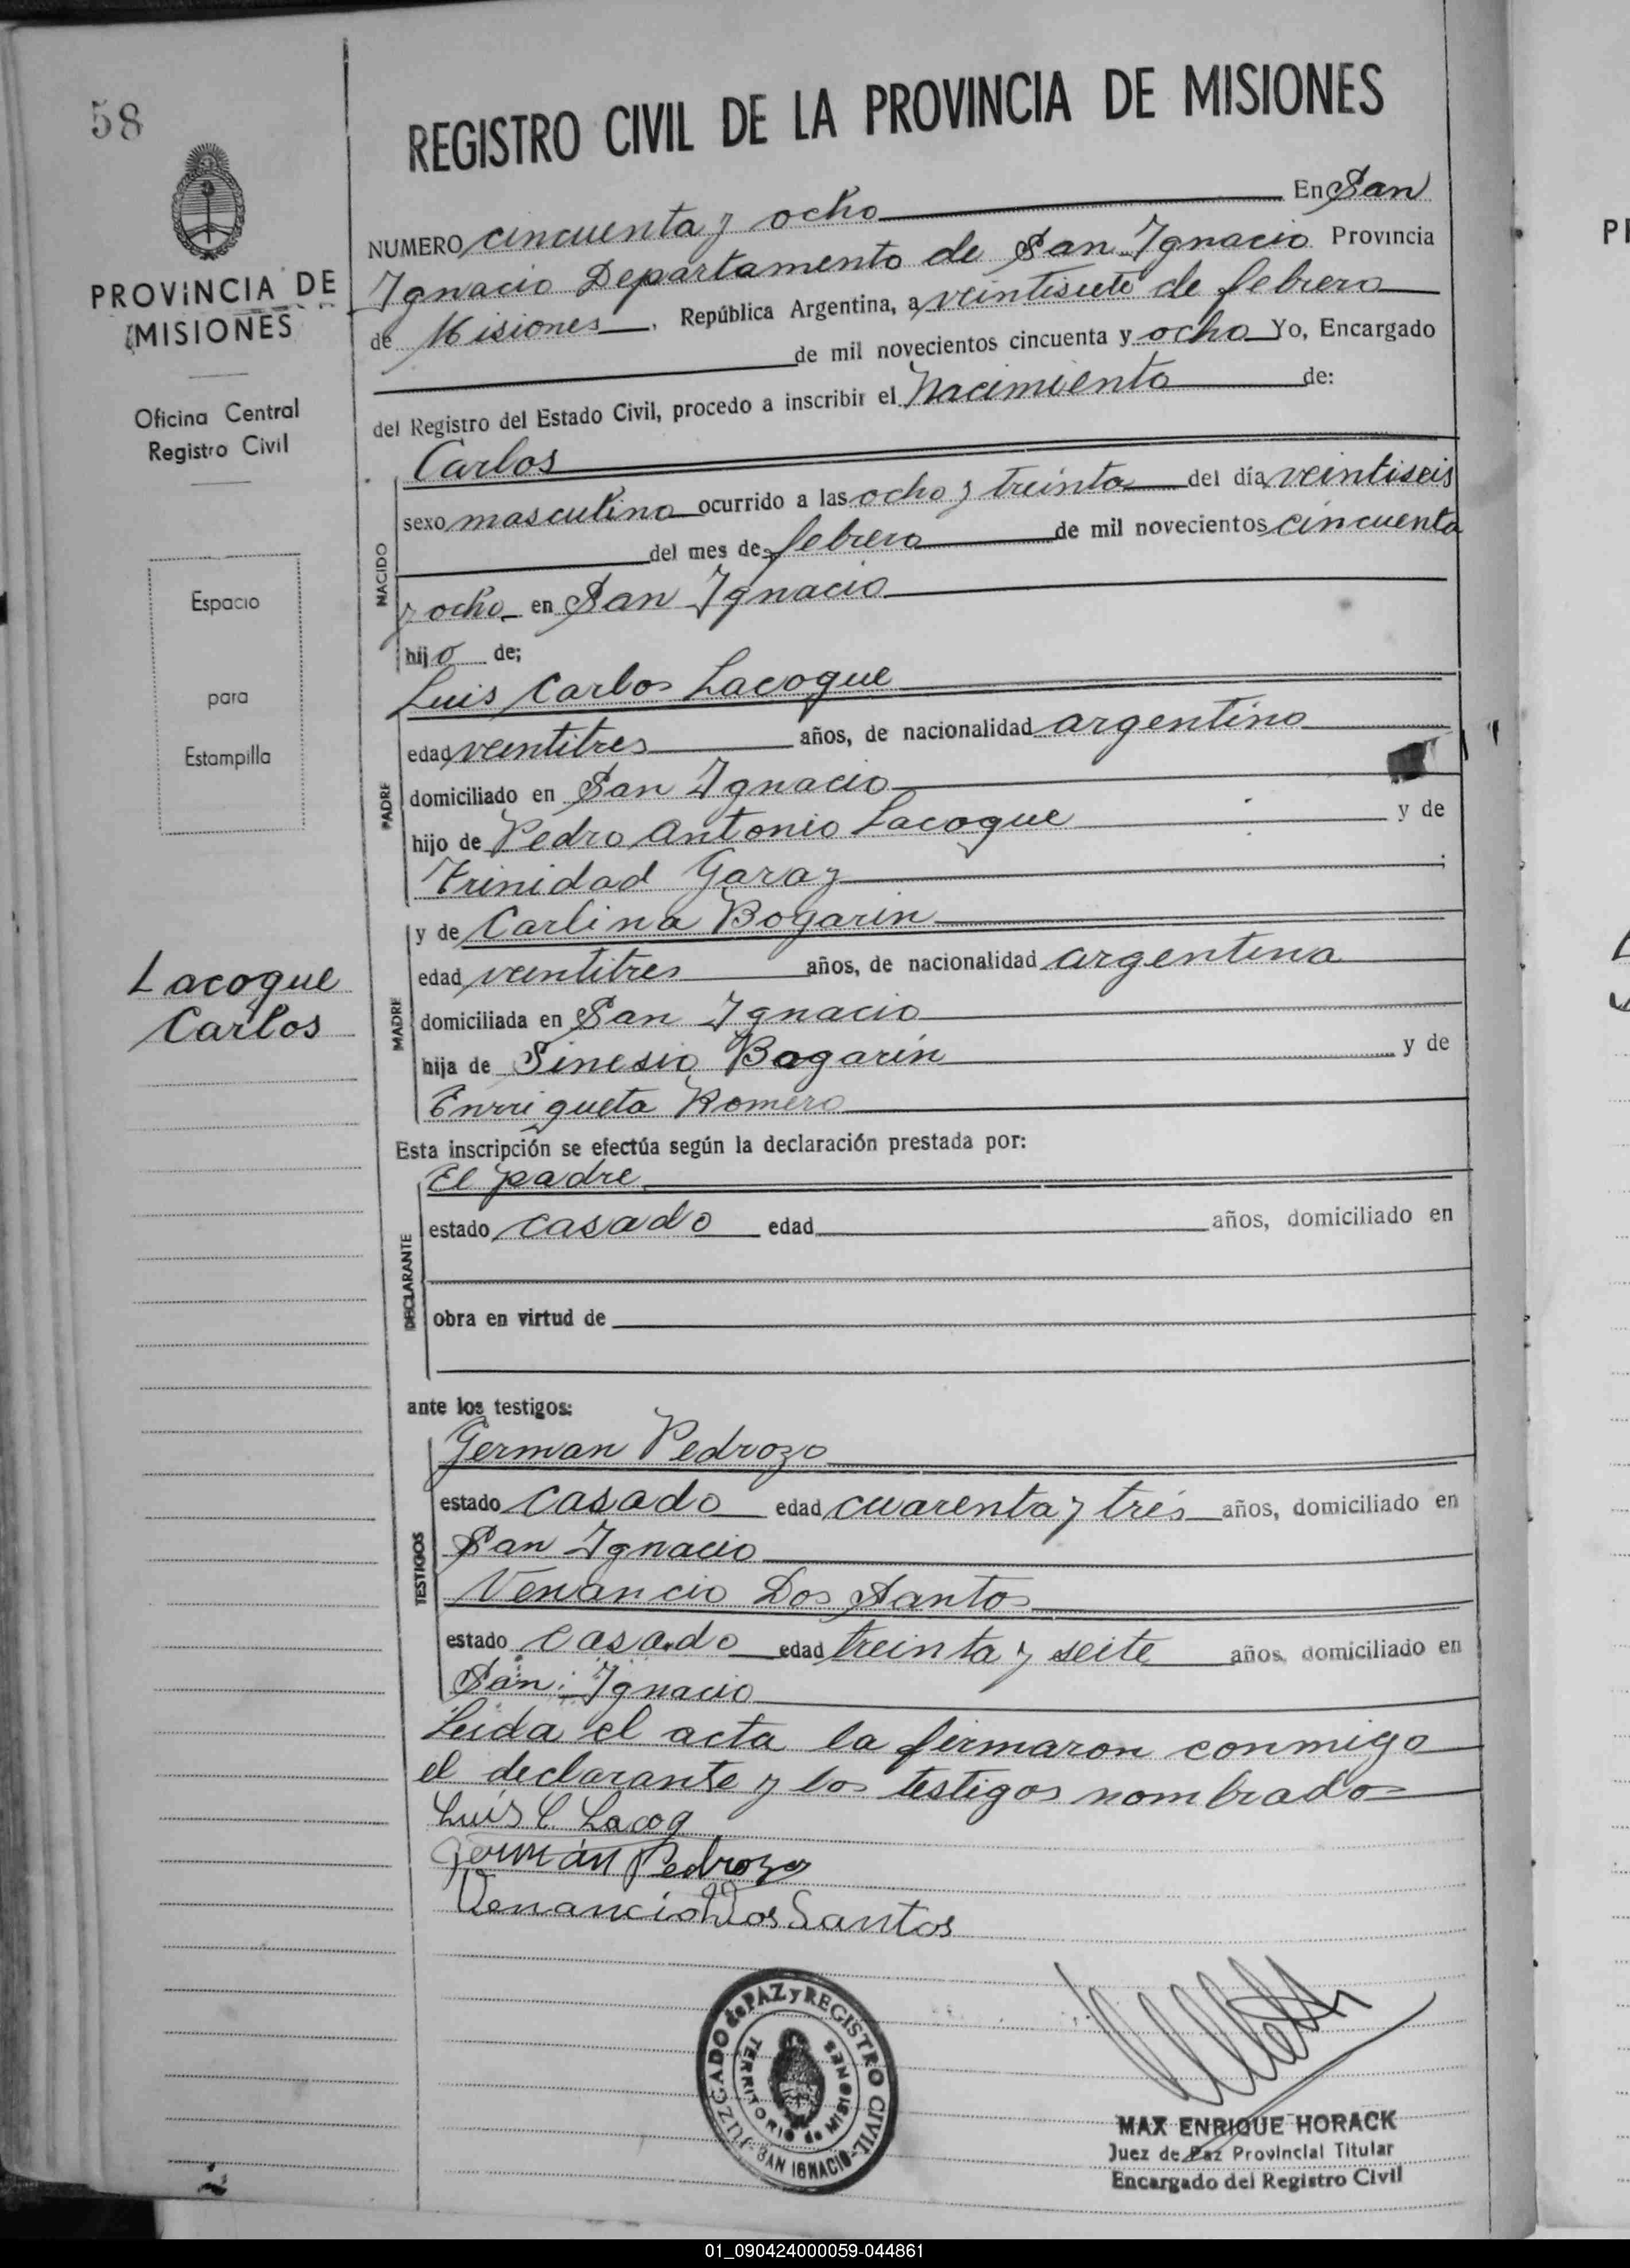 58
REGISTRO CIVIL DE LA PROVINCIA DE MISIONES
PROVINCIA DE
MISIONES
Oficina Central
Registro Civil
Espacio
para
Estampilla
Lacogue
Carlos
NUMERO cincuenta y ocho En San
Ignacio Departamento de San Ignacio Provincia
de Misiones, República Argentina, a veintisiete de febrero
de mil novecientos cincuenta y ocho Yo, Encargado
del Registro del Estado Civil, procedo a inscribir el Nacimiento de:
NACIDO
Carlos
sexo masculino ocurrido a las ocho y treinta del día veintiseis
del mes de febrero de mil novecientos cincuenta
y ocho en San Ignacio
hijo de;
PADRE
Luis Carlos Lacogue
edad veintitres años, de nacionalidad argentino
domiciliado en San Ignacio
hijo de Pedro Antonio Lacogue y de
Trinidad Garay
MADRE
y de Carlina Bogarin
edad veintitres años, de nacionalidad argentina
domiciliada en San Ignacio
hija de Sinesio Bogarin y de
Enrriqueta Romero
Esta inscripción se efectúa según la declaración prestada por:
DECLARANTE
El padre
estado casado edad años, domiciliado en
obra en virtud de
ante los testigos:
TESTIGOS
German Pedrozo
estado casado edad cuarenta y tres años, domiciliado en
San Ignacio
Venancio Dos Santos
estado casado edad treinta y seite años, domiciliado en
San Ignacio
Leida el acta la firmaron conmigo
el declarante y los testigos nombrados
Luis C. Lacog
Germán Pedrozo
Venancio Dos Santos
JUZGADO de PAZ y REGISTRO CIVIL
SAN IGNACIO
TERRITORIO de MISIONES
MAX ENRIQUE HORACK
Juez de Paz Provincial Titular
Encargado del Registro Civil
01_090424000059-044861